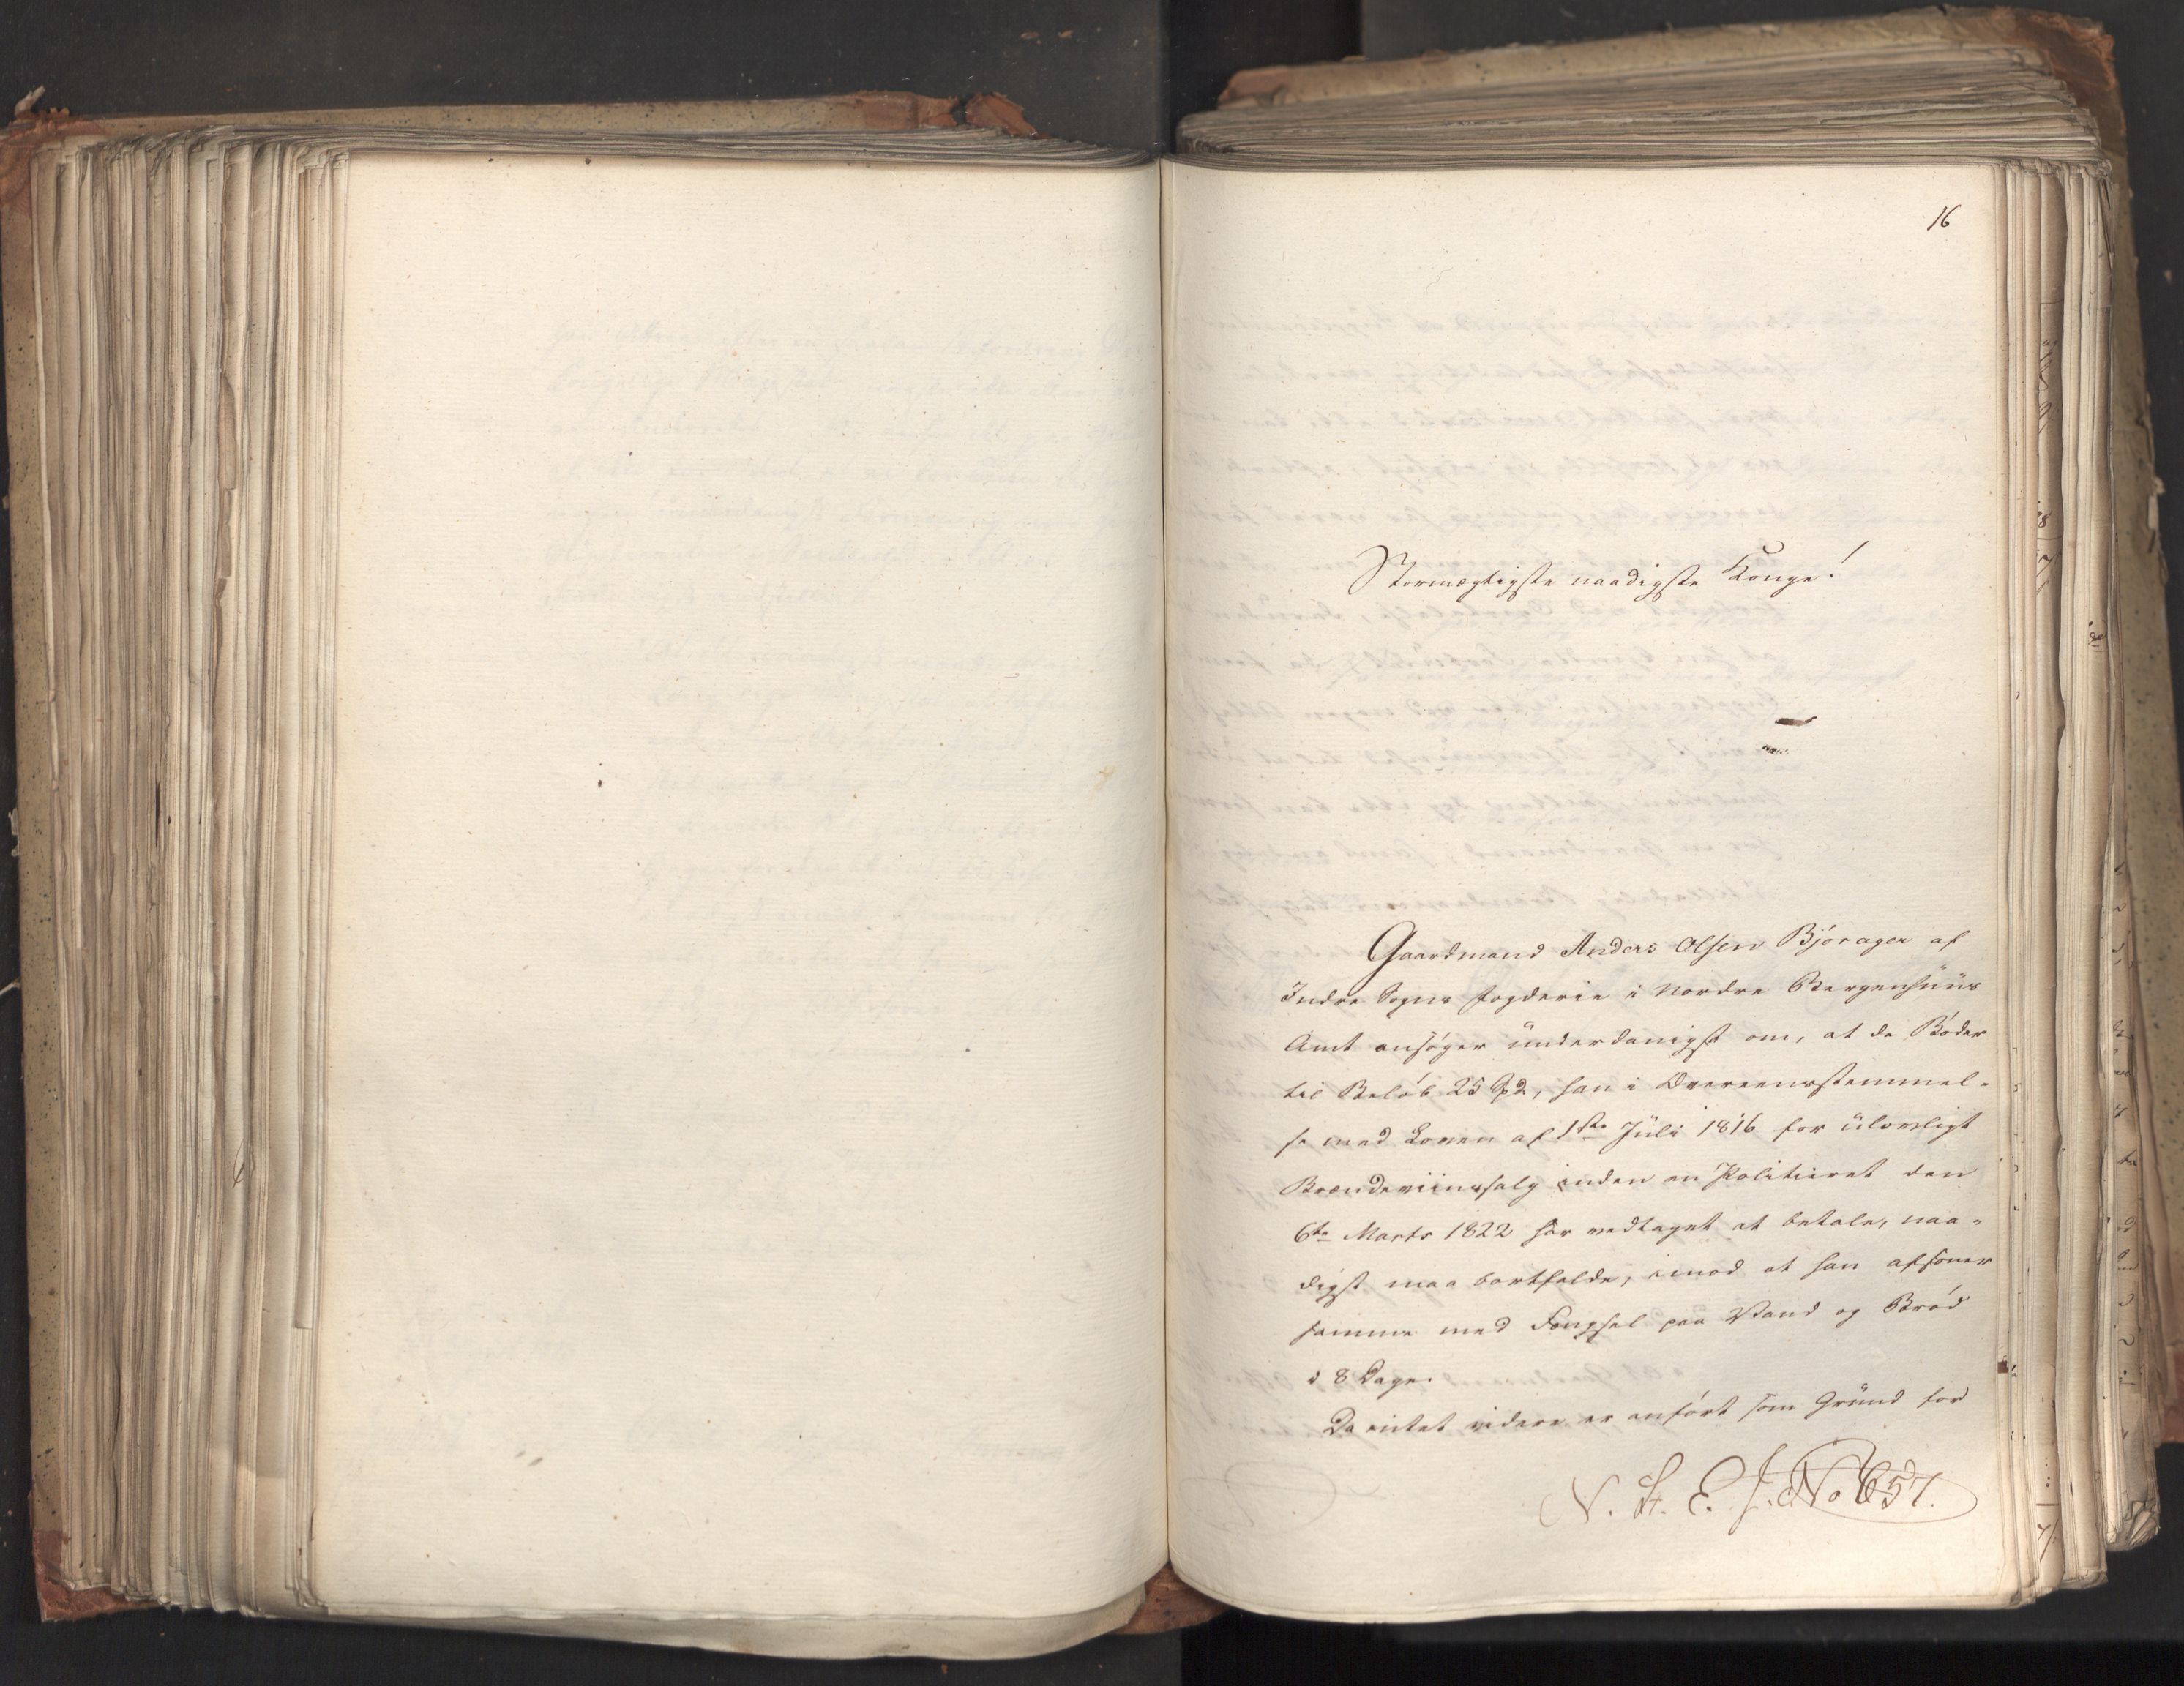 16
Stormægtigste naadigste Konge!
Gaardmand Anders Olsen Bjørager af
Indre Sogns Fogderie i Nordre Bergenhuus
Amt ansøger underdanigst om, at de Bøder
til Beløb 25 Spd, han i Overeensstemmel-
se med Loven af 1ste Juli 1816 for ulovligt
Brændeviinssalg inden en Politieret den
6te Marts 1822 har vedtaget at betale, naa-
digst maa bortfalde, imod at han afsoner
samme med Fængsel paa Vand og Brød
i 8 Dage.
Da intet videre er anført som Grund for
N. St. E. J. No 657.